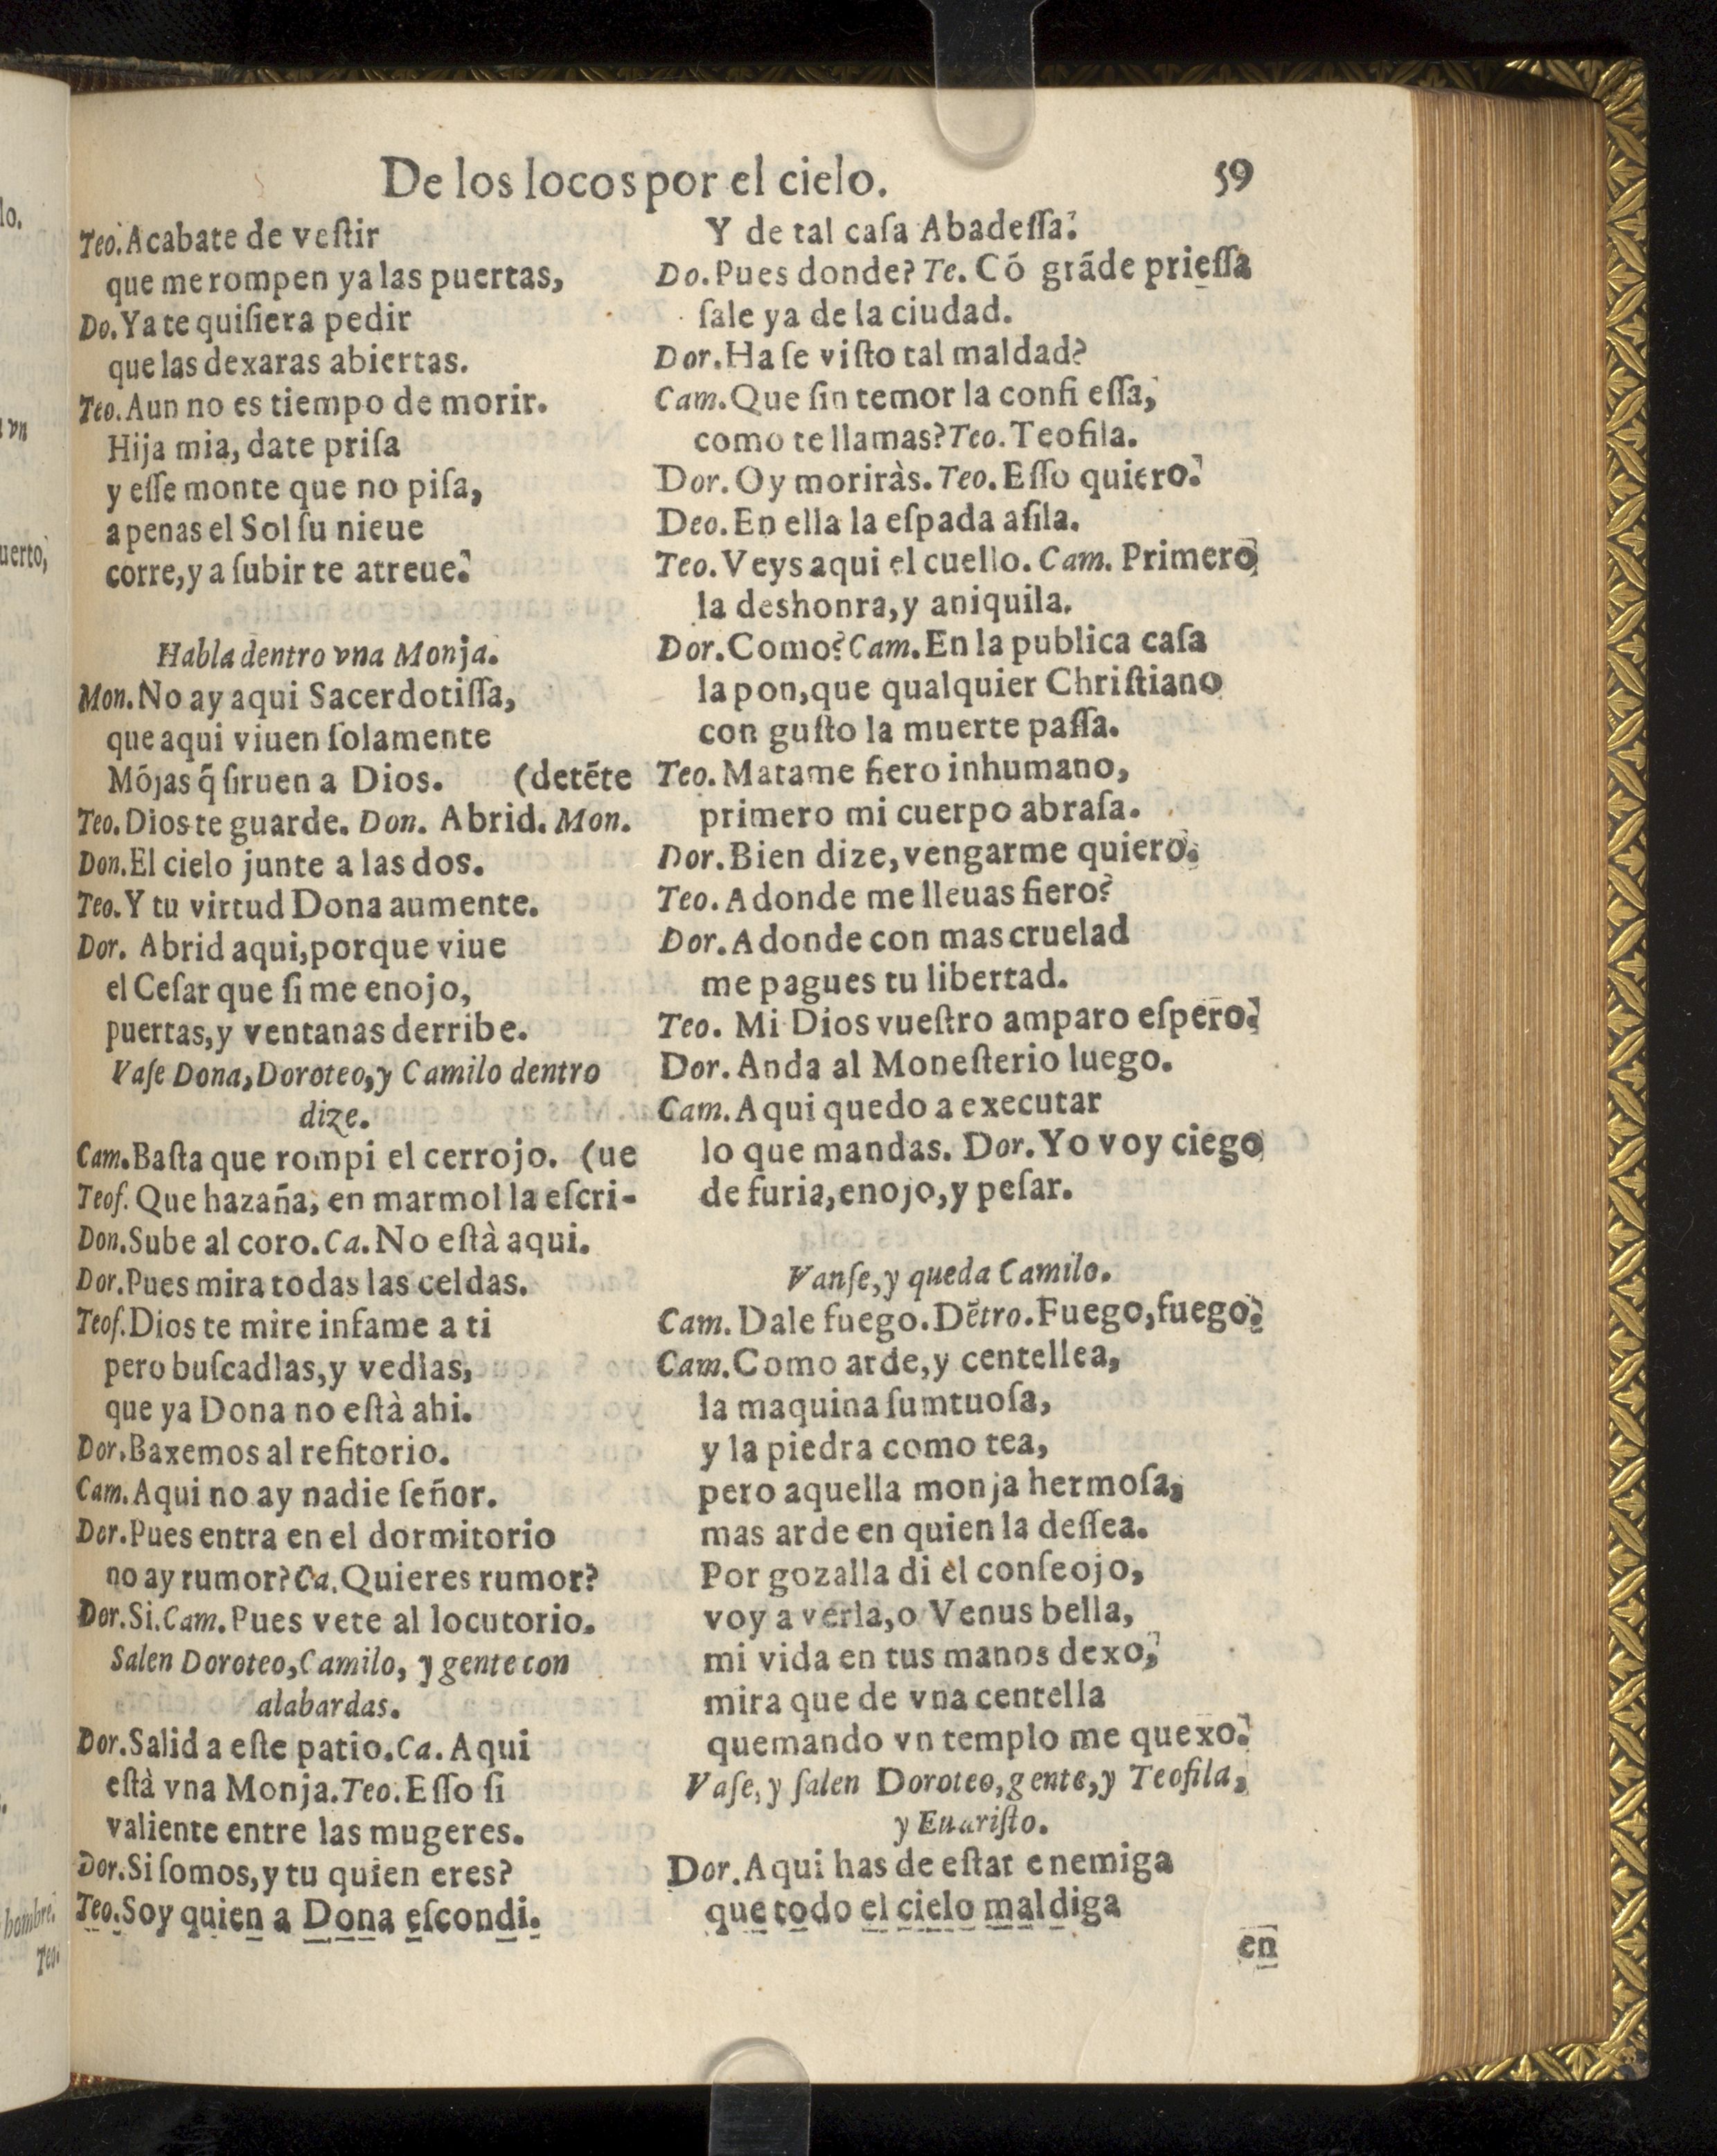 De los locos por el cielo. 59
Teo. Acabate de veſtir
que me rompen ya las puertas,
Do. Ya te quiſiera pedir
que las dexaras abiertas.
Teo. Aun no es tiempo de morir.
Hija mia, date priſa
y eſſe monte que no piſa,
apenas el Sol ſu nieue
corre, y a ſubir te atreue.
Habla dentro vna Monja.
Mon. No ay aqui Sacerdotiſſa,
que aqui viuen ſolamente
Mójas q̃ ſiruen a Dios. (detẽte
Teo. Dios te guarde. Don. Abrid. Mon.
Don. El cielo junte a las dos.
Teo. Y tu virtud Dona aumente.
Dor. Abrid aqui, porque viue
el Ceſar que ſi me enojo,
puertas, y ventanas derribe.
Vaſe Dona, Doroteo, y Camilo dentro
dize.
Cam. Baſta que rompi el cerrojo. (ue
Teof. Que hazaña, en marmol la eſcri-
Don. Sube al coro. Ca. No eſtà aqui.
Dor. Pues mira todas las celdas.
Teof. Dios te mire infame a ti
pero buſcadlas, y vedlas,
que ya Dona no eſtà ahi.
Dor. Baxemos al refitorio.
Cam. Aqui no ay nadie ſeñor.
Dor. Pues entra en el dormitorio
no ay rumor? Ca. Quieres rumor?
Dor. Si. Cam. Pues vete al locutorio.
Salen Doroteo, Camilo, y gente con
alabardas.
Dor. Salid a eſte patio. Ca. Aqui
eſtà vna Monja. Teo. Eſſo ſi
valiente entre las mugeres.
Dor. Si ſomos, y tu quien eres?
Teo. Soy quien a Dona eſcondi.
Y de tal caſa Abadeſſa.
Do. Pues donde? Te. Có grãde prieſſa
ſale ya de la ciudad.
Dor. Ha ſe viſto tal maldad?
Cam. Que ſin temor la confi eſſa,
como te llamas? Teo. Teofila.
Dor. Oy moriràs. Teo. Eſſo quiero.
Deo. En ella la eſpada afila.
Teo. Veys aqui el cuello. Cam. Primero
la deshonra, y aniquila.
Dor. Como? Cam. En la publica caſa
la pon, que qualquier Chriſtiano
con guſto la muerte paſſa.
Teo. Matame fiero inhumano,
primero mi cuerpo abraſa.
Dor. Bien dize, vengarme quiero.
Teo. Adonde me lleuas fiero?
Dor. Adonde con mas cruelad
me pagues tu libertad.
Teo. Mi Dios vueſtro amparo eſpero.
Dor. Anda al Moneſterio luego.
Cam. Aqui quedo a executar
lo que mandas. Dor. Yo voy ciego
de furia, enojo, y peſar.
Vanſe, y queda Camilo.
Cam. Dale fuego. Dẽtro. Fuego, fuego.
Cam. Como arde, y centellea,
la maquina ſumtuoſa,
y la piedra como tea,
pero aquella monja hermoſa,
mas arde en quien la deſſea.
Por gozalla di el conſeojo,
voy a verla, o Venus bella,
mi vida en tus manos dexo,
mira que de vna centella
quemando vn templo me quexo.
Vaſe, y ſalen Doroteo, gente, y Teofila,
y Euariſto.
Dor. Aqui has de eſtar enemiga
que todo el cielo maldiga
en